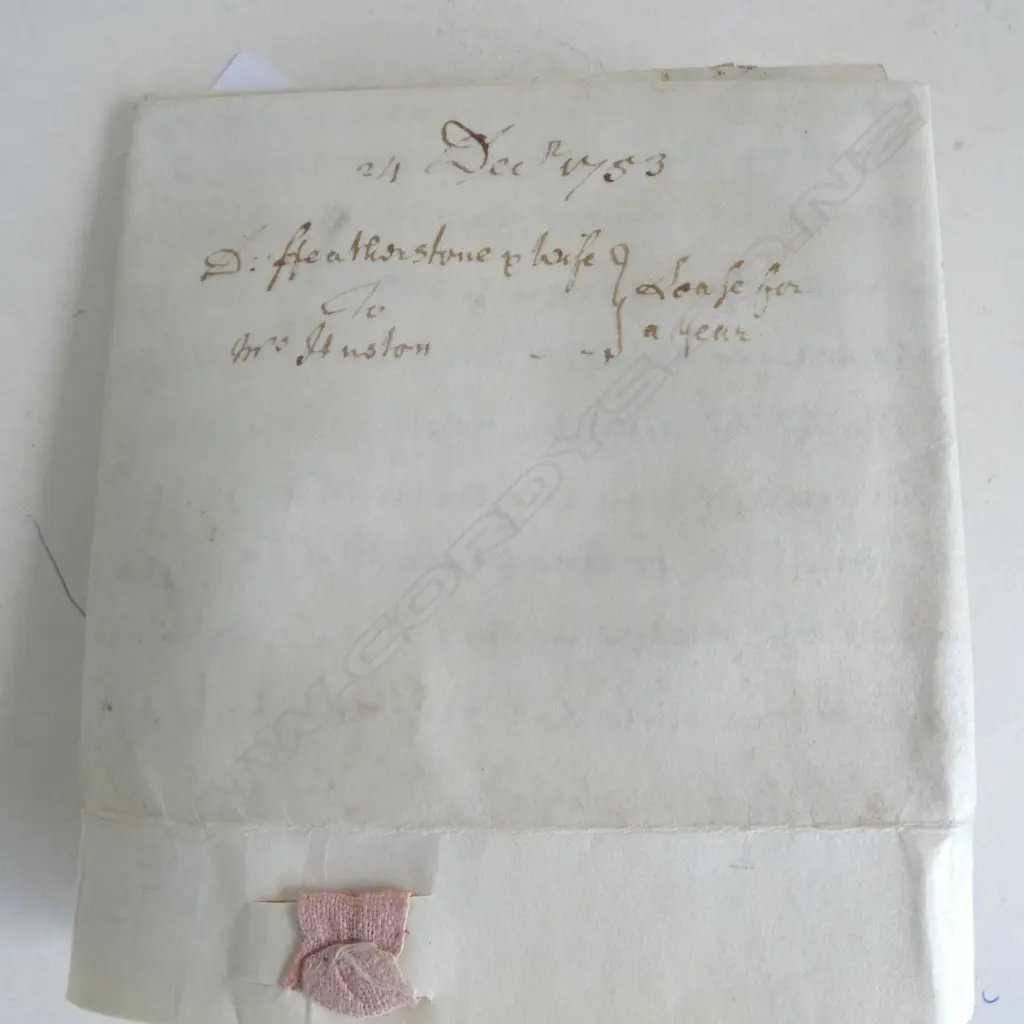 24 Decr 1753
D: ffeatherstone & wife
To
Mrs Huston
Lease for
a year
WWW.CORDYS.CO.NZ